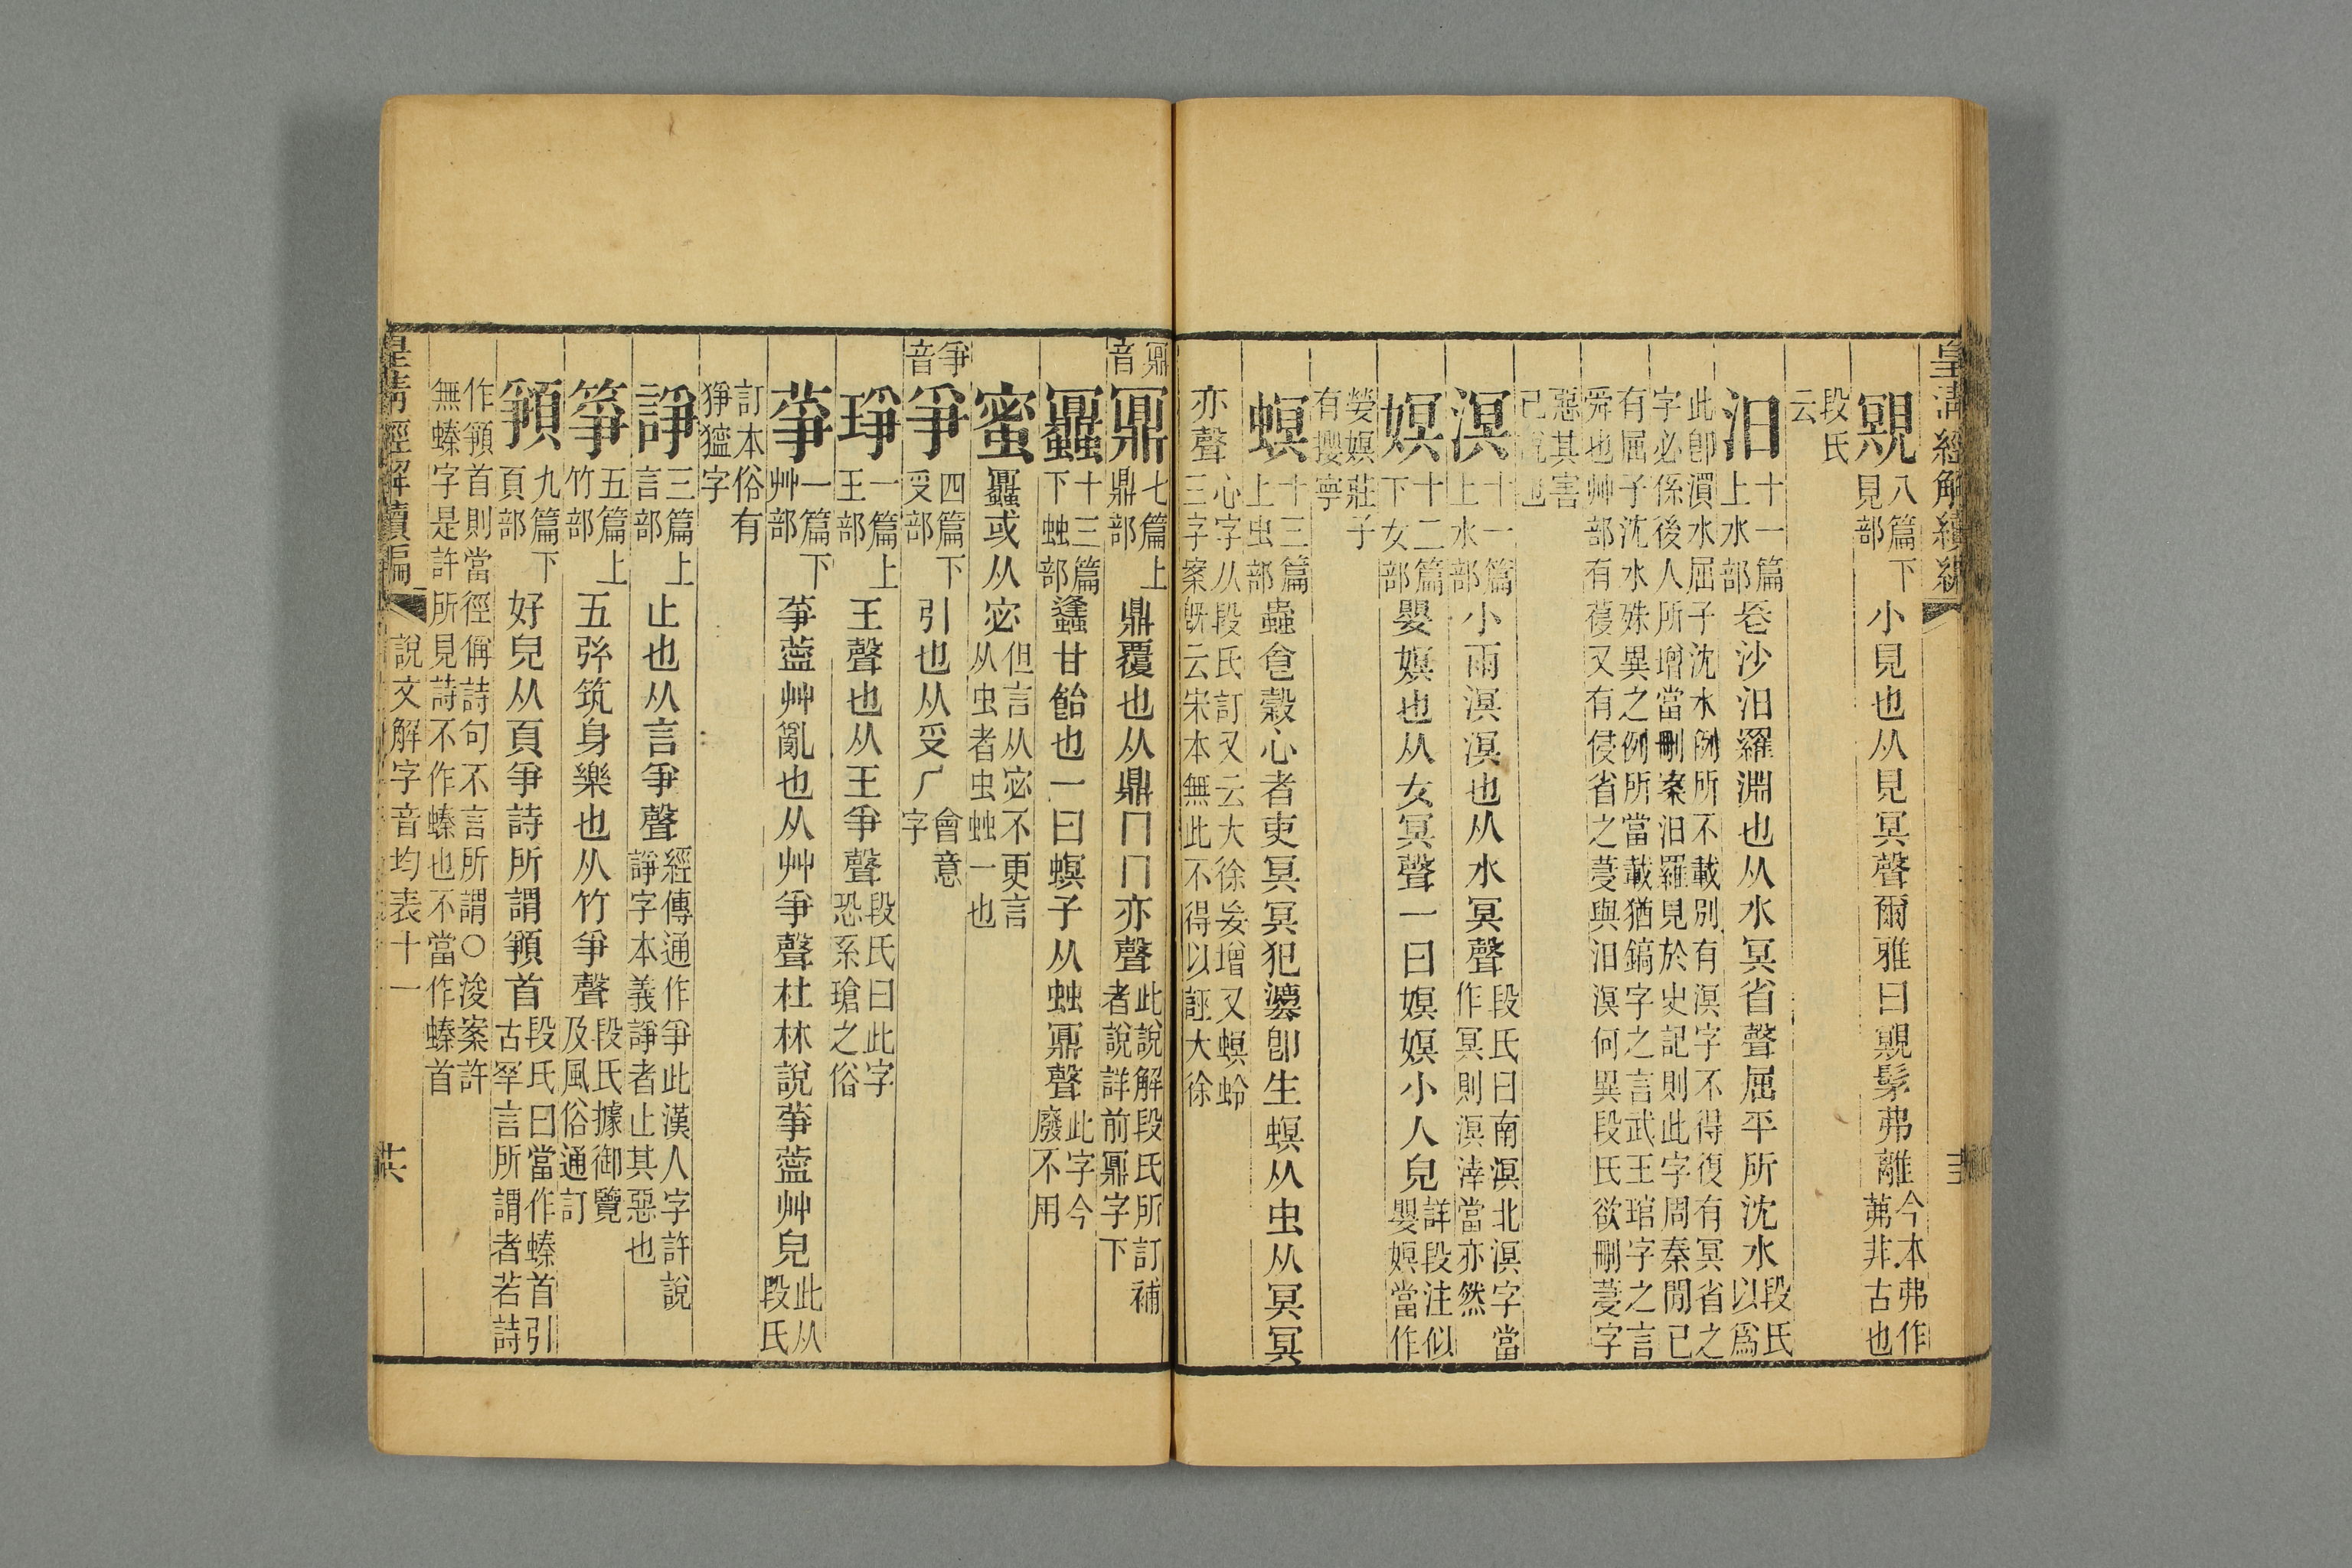 皇清經解續編
覭八篇下見部小見也从見冥聲爾雅曰覭髳弗離今本弗作茀非古也
段氏云
汨十一篇上水部長沙汨羅淵也从水冥省聲屈平所沈水段氏以爲
此卽潣水屈子沈水所不載別有溟字不得復有冥省之字必係後人所增當刪案汨羅見於史記則此字周秦閒已
有屈子沈水殊異之例所當載猶鎬字之言武王琯字之言舜也艸部有葠又有侵省之蔓與汨溟何異段氏欲刪蔓字
惡其害已說也
溟十一篇上水部小雨溟溟也从水冥聲段氏曰南溟北溟字當作冥則溟涬當亦然
嫇十二篇下女部嬰嫇也从女冥聲一曰嫇嫇小人皃詳段注似嬰嫇當作
嫈嫇莊子有攖寧
螟十三篇上虫部蟲食穀心者吏冥冥犯灋卽生螟从虫从冥冥
亦聲心字从段氏訂又云大徐妄增又螟蛉三字案旣云宋本無此不得以誣大徐
鼏音
鼏七篇上鼎部鼎覆也从鼎冂冂亦聲此說解段氏所訂補者說詳前鼏字下
䘉十三篇下䖵部䗬甘飴也一曰螟子从䖵鼏聲此字今廢不用
蜜䘉或从宓但言从宓不更言从虫者虫䖵一也
爭音
爭四篇下𠬪部引也从𠬪𠂆會意字
琤一篇上王部王聲也从王爭聲段氏曰此字恐系瑲之俗
䓸一篇下艸部䓸薴艸亂也从艸爭聲杜林說䓸薴艸皃此从段氏
訂本俗有猙獰字
諍三篇上言部止也从言爭聲經傳通作爭此漢人字許說諍字本義諍者止其惡也
箏五篇上竹部五弦筑身樂也从竹爭聲段氏據御覽及風俗通訂
䫆九篇下頁部好皃从頁爭詩所謂䫆首段氏曰當作螓首引古罕言所謂者若詩
作䫆首則當徑偁詩句不言所謂〇浚案許無螓字是許所見詩不作螓也不當作螓首
皇清經解續編 說文解字音均表十一